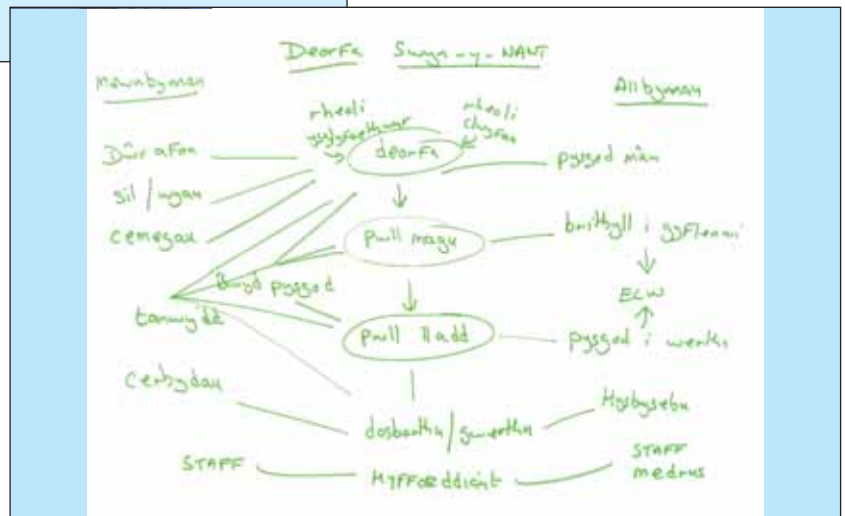 Deorfa Swyn-y-NANT
Mewnbynnau
Allbynnau
rheoli ysglyfaethwyr
rheoli clefydau
Dŵr afon
deorfa
pysgod mân
sil / wyau
cemegau
pwll magu
brithyll i gyflenwi
Bwyd pysgod
ELW
tanwydd
pwll lladd
pysgod i werthu
cerbydau
Hysbysebu
dosbarthu / gwerthu
STAFF
HYFFORddiant
STAFF
medrus